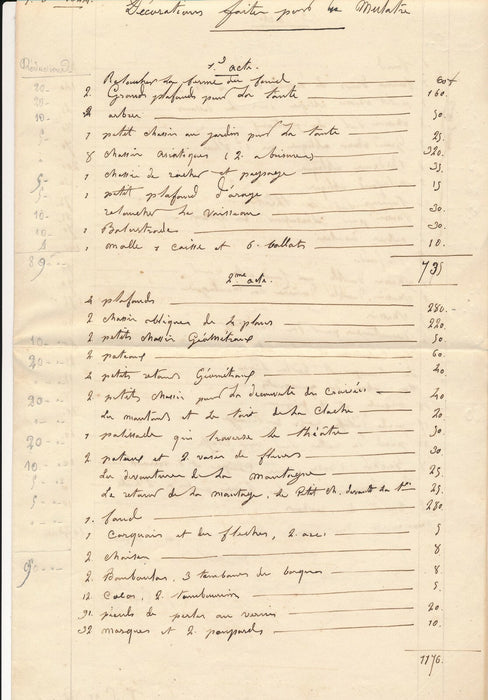 Décorations faites pour le Mulatre
1er acte.
Réductions
Retoucher la ferme du fond 60
20- 2 Grands plafonds pour la tente 160.
20-
10- 2 arbres 50.
5- 1 petit chassis au jardin pour la tente 25.
8 chassis asiatiques (2 a brisures) 320.
1 chassis de rocher et paysage 35.
5- 1 petit plafond d'orage 15
5- retoucher le vaisseau 30.
10- 1 Balustrade 30.
1 malle 1 caisse et 6 ballots 10.
89 735
2me acte.
4 plafonds 280.-
2 chassis obliques de 4 plans 220.
2 petits chassis Géométraux 50.
10- 2 poteaux 60.
20- 4 petits retours Géométraux 40.
2 petits chassis pour la découverte des Croisées 40
20- Les montants et le toit de la cloche 20
1 palissade qui traverse le théâtre 50.
20- 2 poteaux et 2 vases de fleurs 30.
10- La devanture de la montagne 25.
5- Le retour de la montagne, le Petit ch. devant 25.
5- 1. fond 280
1 Carquois et les fleches, 2 arcs 5
2 chaises 8
2. Bamboulas, 3 tambours de basques 8.
12 Cocos, 2 tambourins 5.
pieds de 20.
32 masques et 2 poupards 10.
1176.